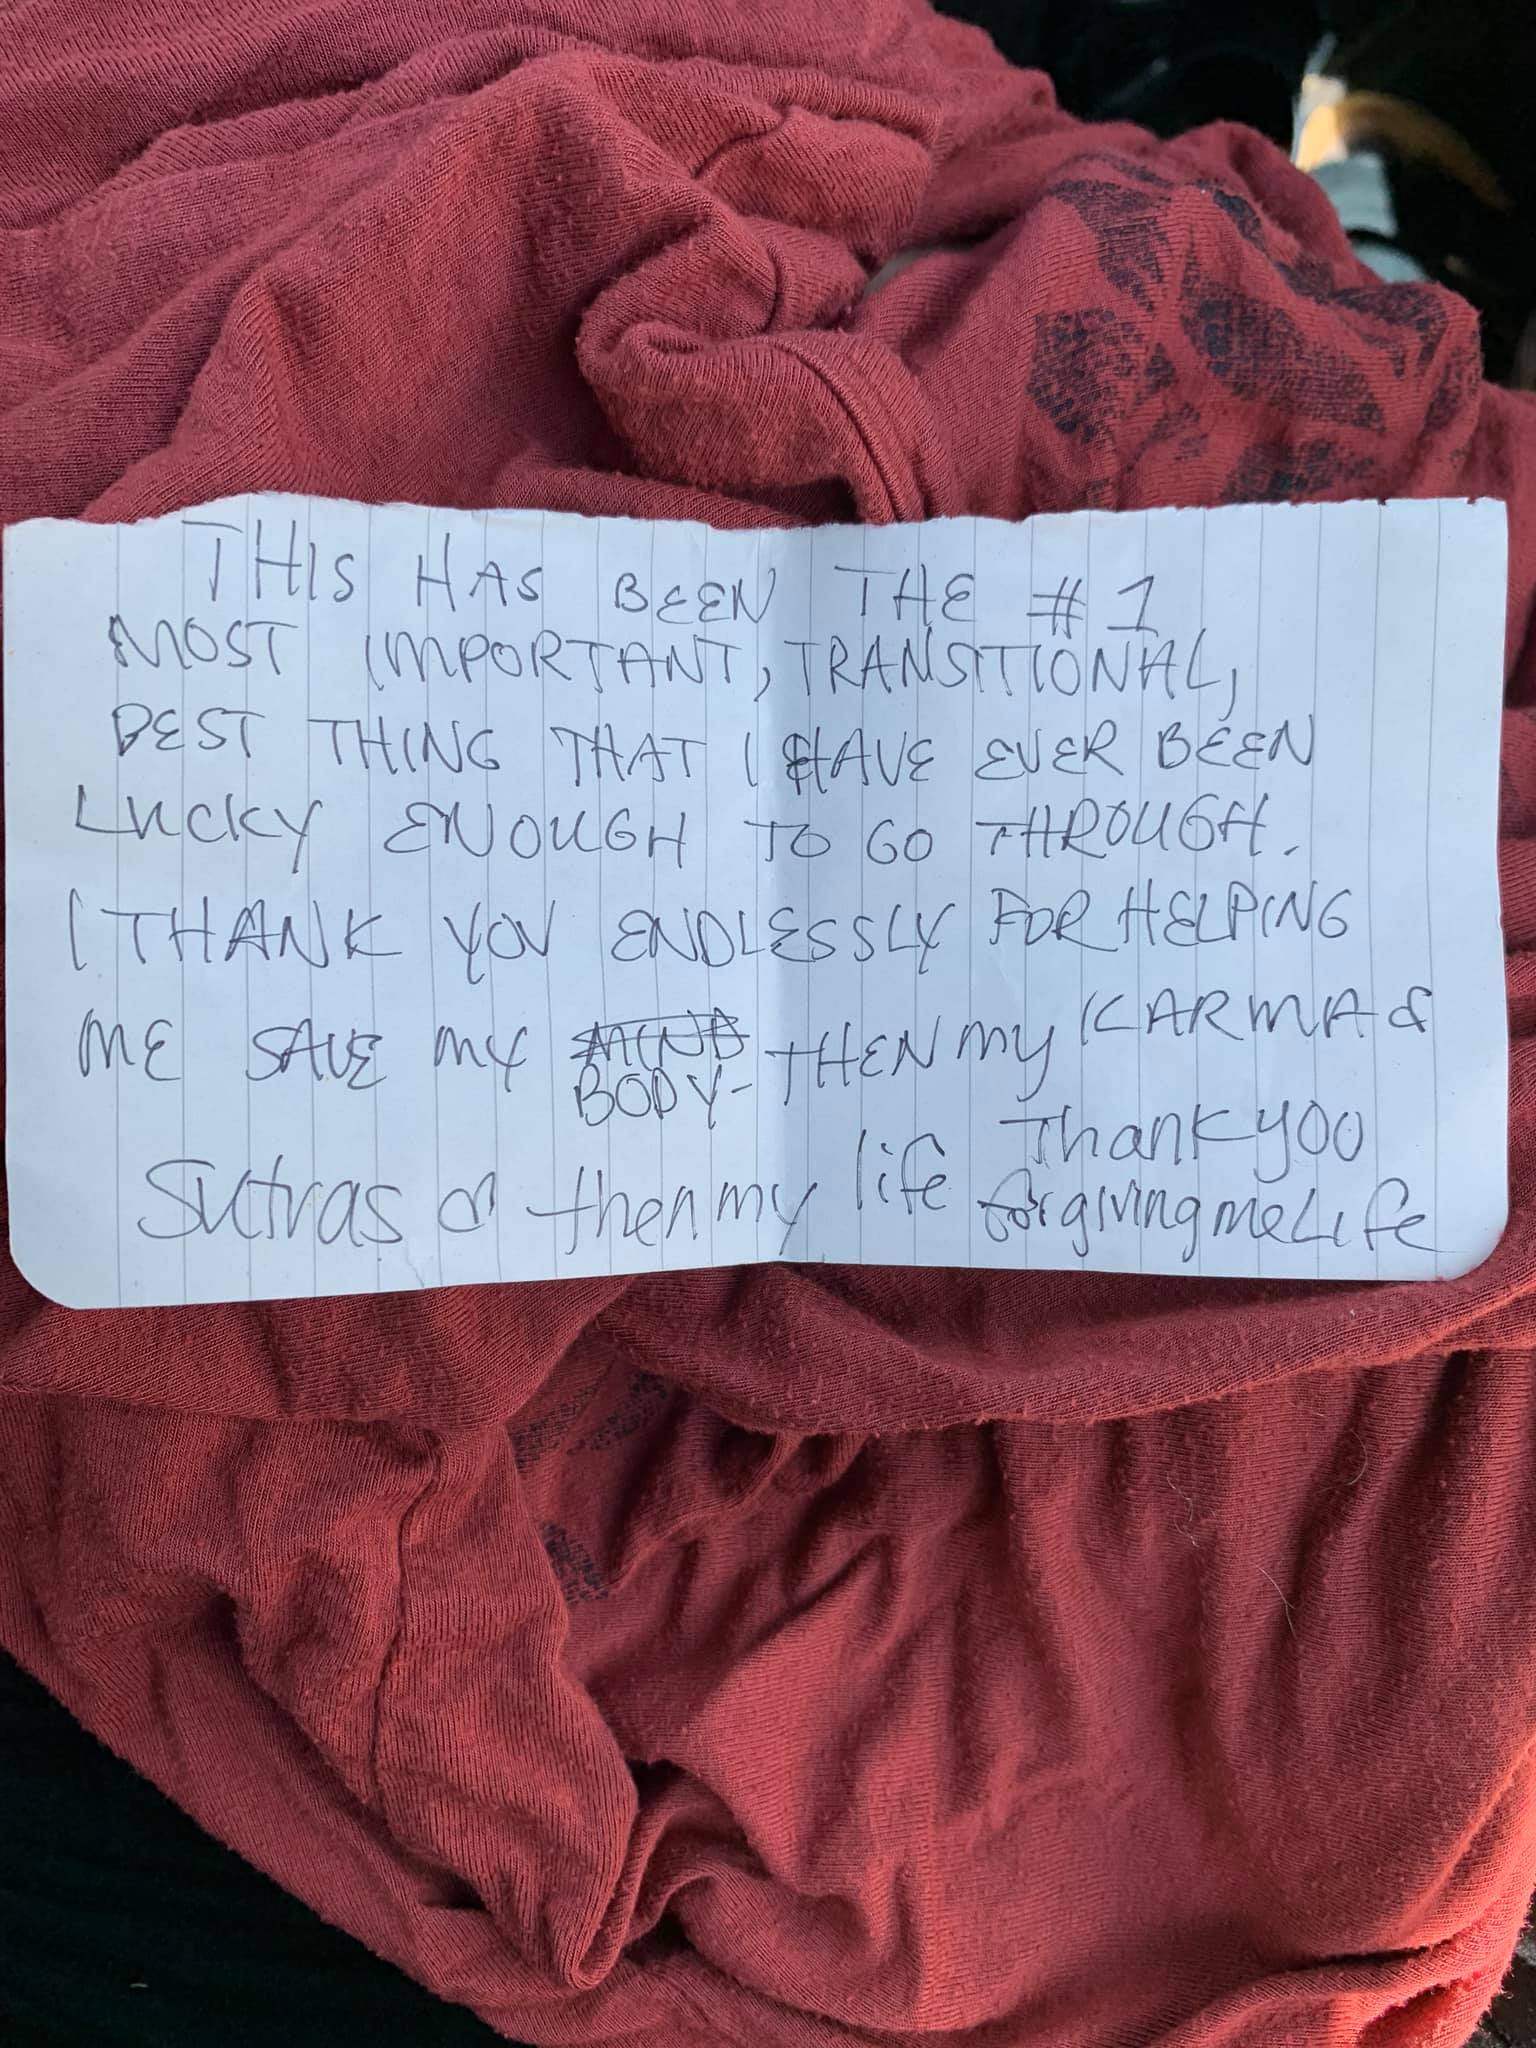 THIS HAS BEEN THE #1
MOST IMPORTANT, TRANSITIONAL,
BEST THING THAT I HAVE EVER BEEN
LUCKY ENOUGH TO GO THROUGH.
I THANK YOU ENDLESSLY FOR HELPING
ME SAVE MY MIND THEN MY KARMA &
BODY-
Sutras & then my life Thank you
for giving me Life